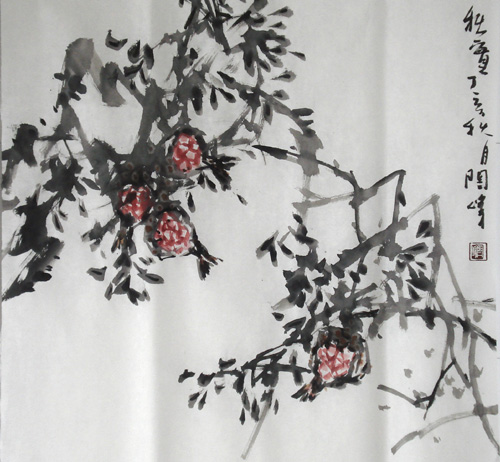 秋實丁亥秋月陶峰